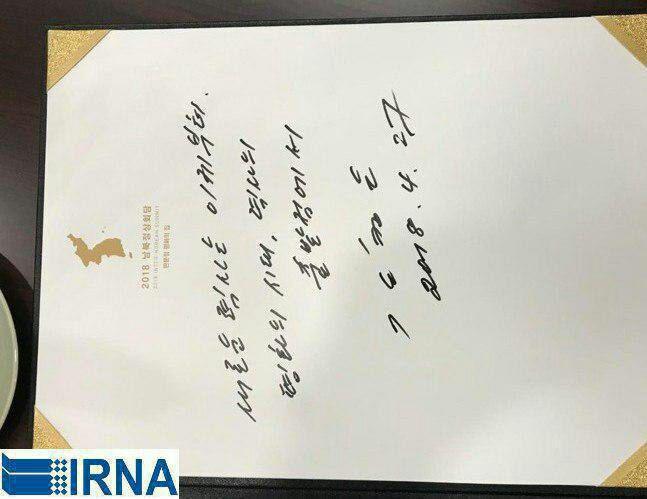 2018 남북정상회담
2018 INTER-KOREAN SUMMIT
판문점 평화의 집
새로운 력사는 이제부터.
평화의 시대, 력사의
출발점에서
김정은
2018. 4. 27
IRNA